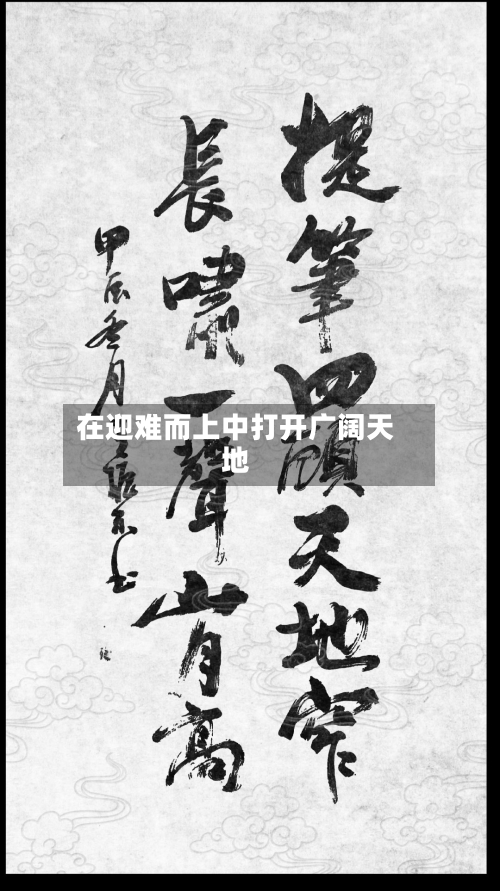 提筆四顧天地窄
長嘯一聲山月高
甲辰冬月
在迎难而上中打开广阔天
地